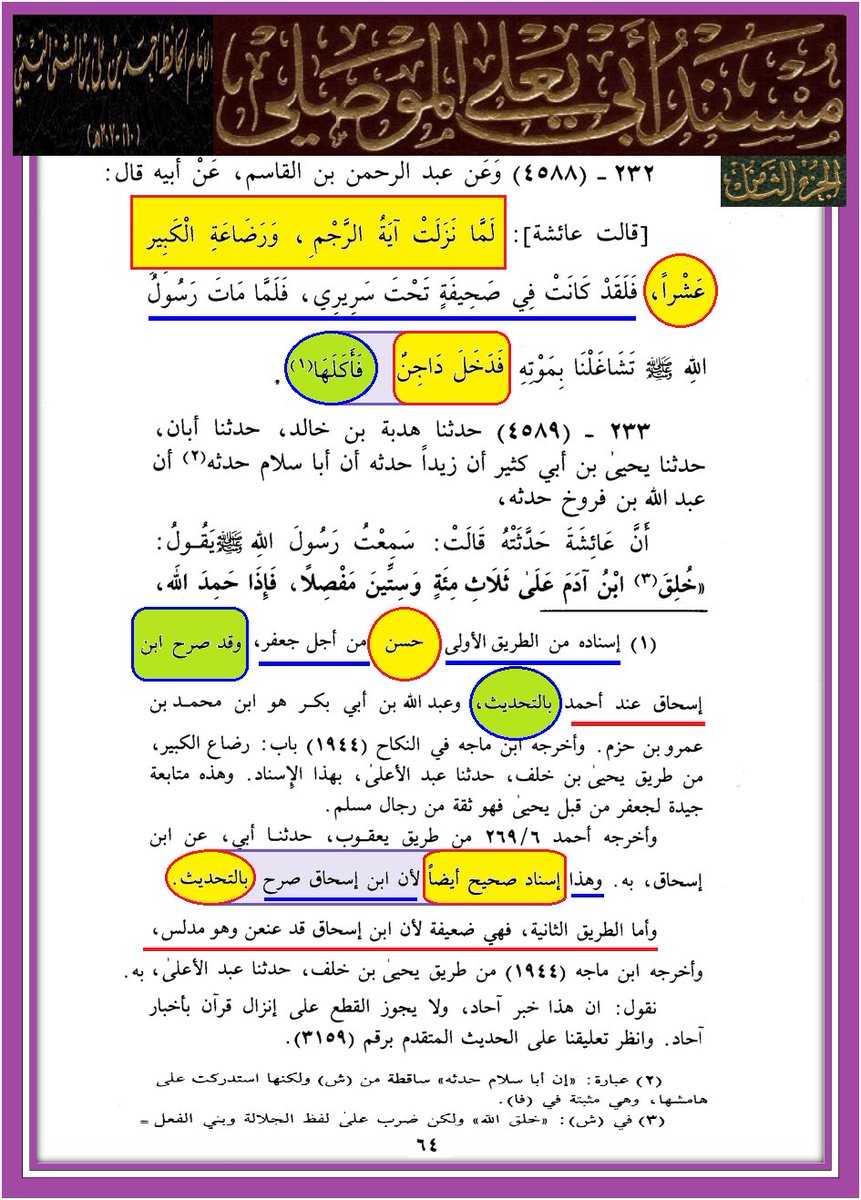 الإمام الحافظ أحمد بن علي بن المثنى التميمي
مسند أبي يعلى الموصلي
(٢١٠-٣٠٧هـ)
الجزء الثامن
٢٣٢ - (٤٥٨٨) وَعَن عبد الرحمن بن القاسم، عَنْ أبيه قال:
[قالت عائشة]: لَمَّا نَزَلَتْ آيَةُ الرَّجْمِ، وَرَضَاعَةِ الْكَبِيرِ
عَشْراً، فَلَقَدْ كَانَتْ فِي صَحِيفَةٍ تَحْتَ سَرِيرِي، فَلَمَّا مَاتَ رَسُولُ
اللهِ ﷺ تَشَاغَلْنَا بِمَوْتِهِ فَدَخَلَ دَاجِنٌ فَأَكَلَهَا(١).
٢٣٣ - (٤٥٨٩) حدثنا هدبة بن خالد، حدثنا أبان،
حدثنا يحيىٰ بن أبي كثير أن زيداً حدثه أن أبا سلام حدثه(٢) أن
عبد الله بن فروخ حدثه،
أَنَّ عَائِشَةَ حَدَّثَتْهُ قَالَتْ: سَمِعْتُ رَسُولَ اللهِ ﷺ يَقُولُ:
«خُلِقَ(٣) ابْنُ آدَمَ عَلَىٰ ثَلَاثِ مِئَةٍ وَسِتِّينَ مَفْصِلًا، فَإِذَا حَمِدَ الله،
(١) إسناده من الطريق الأولى حسن من أجل جعفر، وقد صرح ابن
إسحاق عند أحمد بالتحديث، وعبد الله بن أبي بكر هو ابن محمد بن
عمرو بن حزم. وأخرجه ابن ماجه في النكاح (١٩٤٤) باب: رضاع الكبير،
من طريق يحيىٰ بن خلف، حدثنا عبد الأعلىٰ، بهذا الإِسناد. وهذه متابعة
جيدة لجعفر من قبل يحيىٰ فهو ثقة من رجال مسلم.
وأخرجه أحمد ٢٦٩/٦ من طريق يعقوب، حدثنا أبي، عن ابن
إسحاق، به. وهذا إسناد صحيح أيضاً لأن ابن إسحاق صرح بالتحديث.
وأما الطريق الثانية، فهي ضعيفة لأن ابن إسحاق قد عنعن وهو مدلس،
وأخرجه ابن ماجه (١٩٤٤) من طريق يحيىٰ بن خلف، حدثنا عبد الأعلىٰ، به.
نقول: ان هذا خبر آحاد، ولا يجوز القطع على إنزال قرآن بأخبار
آحاد. وانظر تعليقنا على الحديث المتقدم برقم (٣١٥٩).
(٢) عبارة: «إن أبا سلام حدثه» ساقطة من (ش) ولكنها استدركت على
هامشها، وهي مثبتة في (فا).
(٣) في (ش): «خلق الله» ولكن ضرب علىٰ لفظ الجلالة وبني الفعل =
٦٤